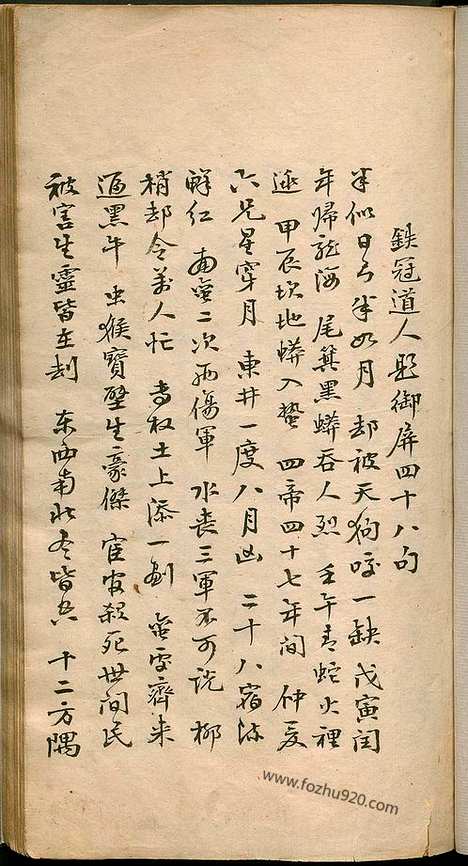 鉄冠道人題御屏四十八句
半似日兮半如月 却被天狗咬一缺 戊寅闰
年帰龍海 尾箕黑蟒吞人烈 壬午青蛇火裡
逃 甲辰坎地蟒入蛰 四帝四十七年间 仲夏
六兄星穿月 東井一度八月凶 二十八宿
鲜红 南 二次两傷軍 水丧三軍不可说 柳
梢却令萬人忙 专权土上添一剑 齊来
逼黑午 虫猴寶壁生豪傑 宦官殺死世间民
被害生靈皆在刦 东西南北冬皆 十二方隅
www.fozhu920.com